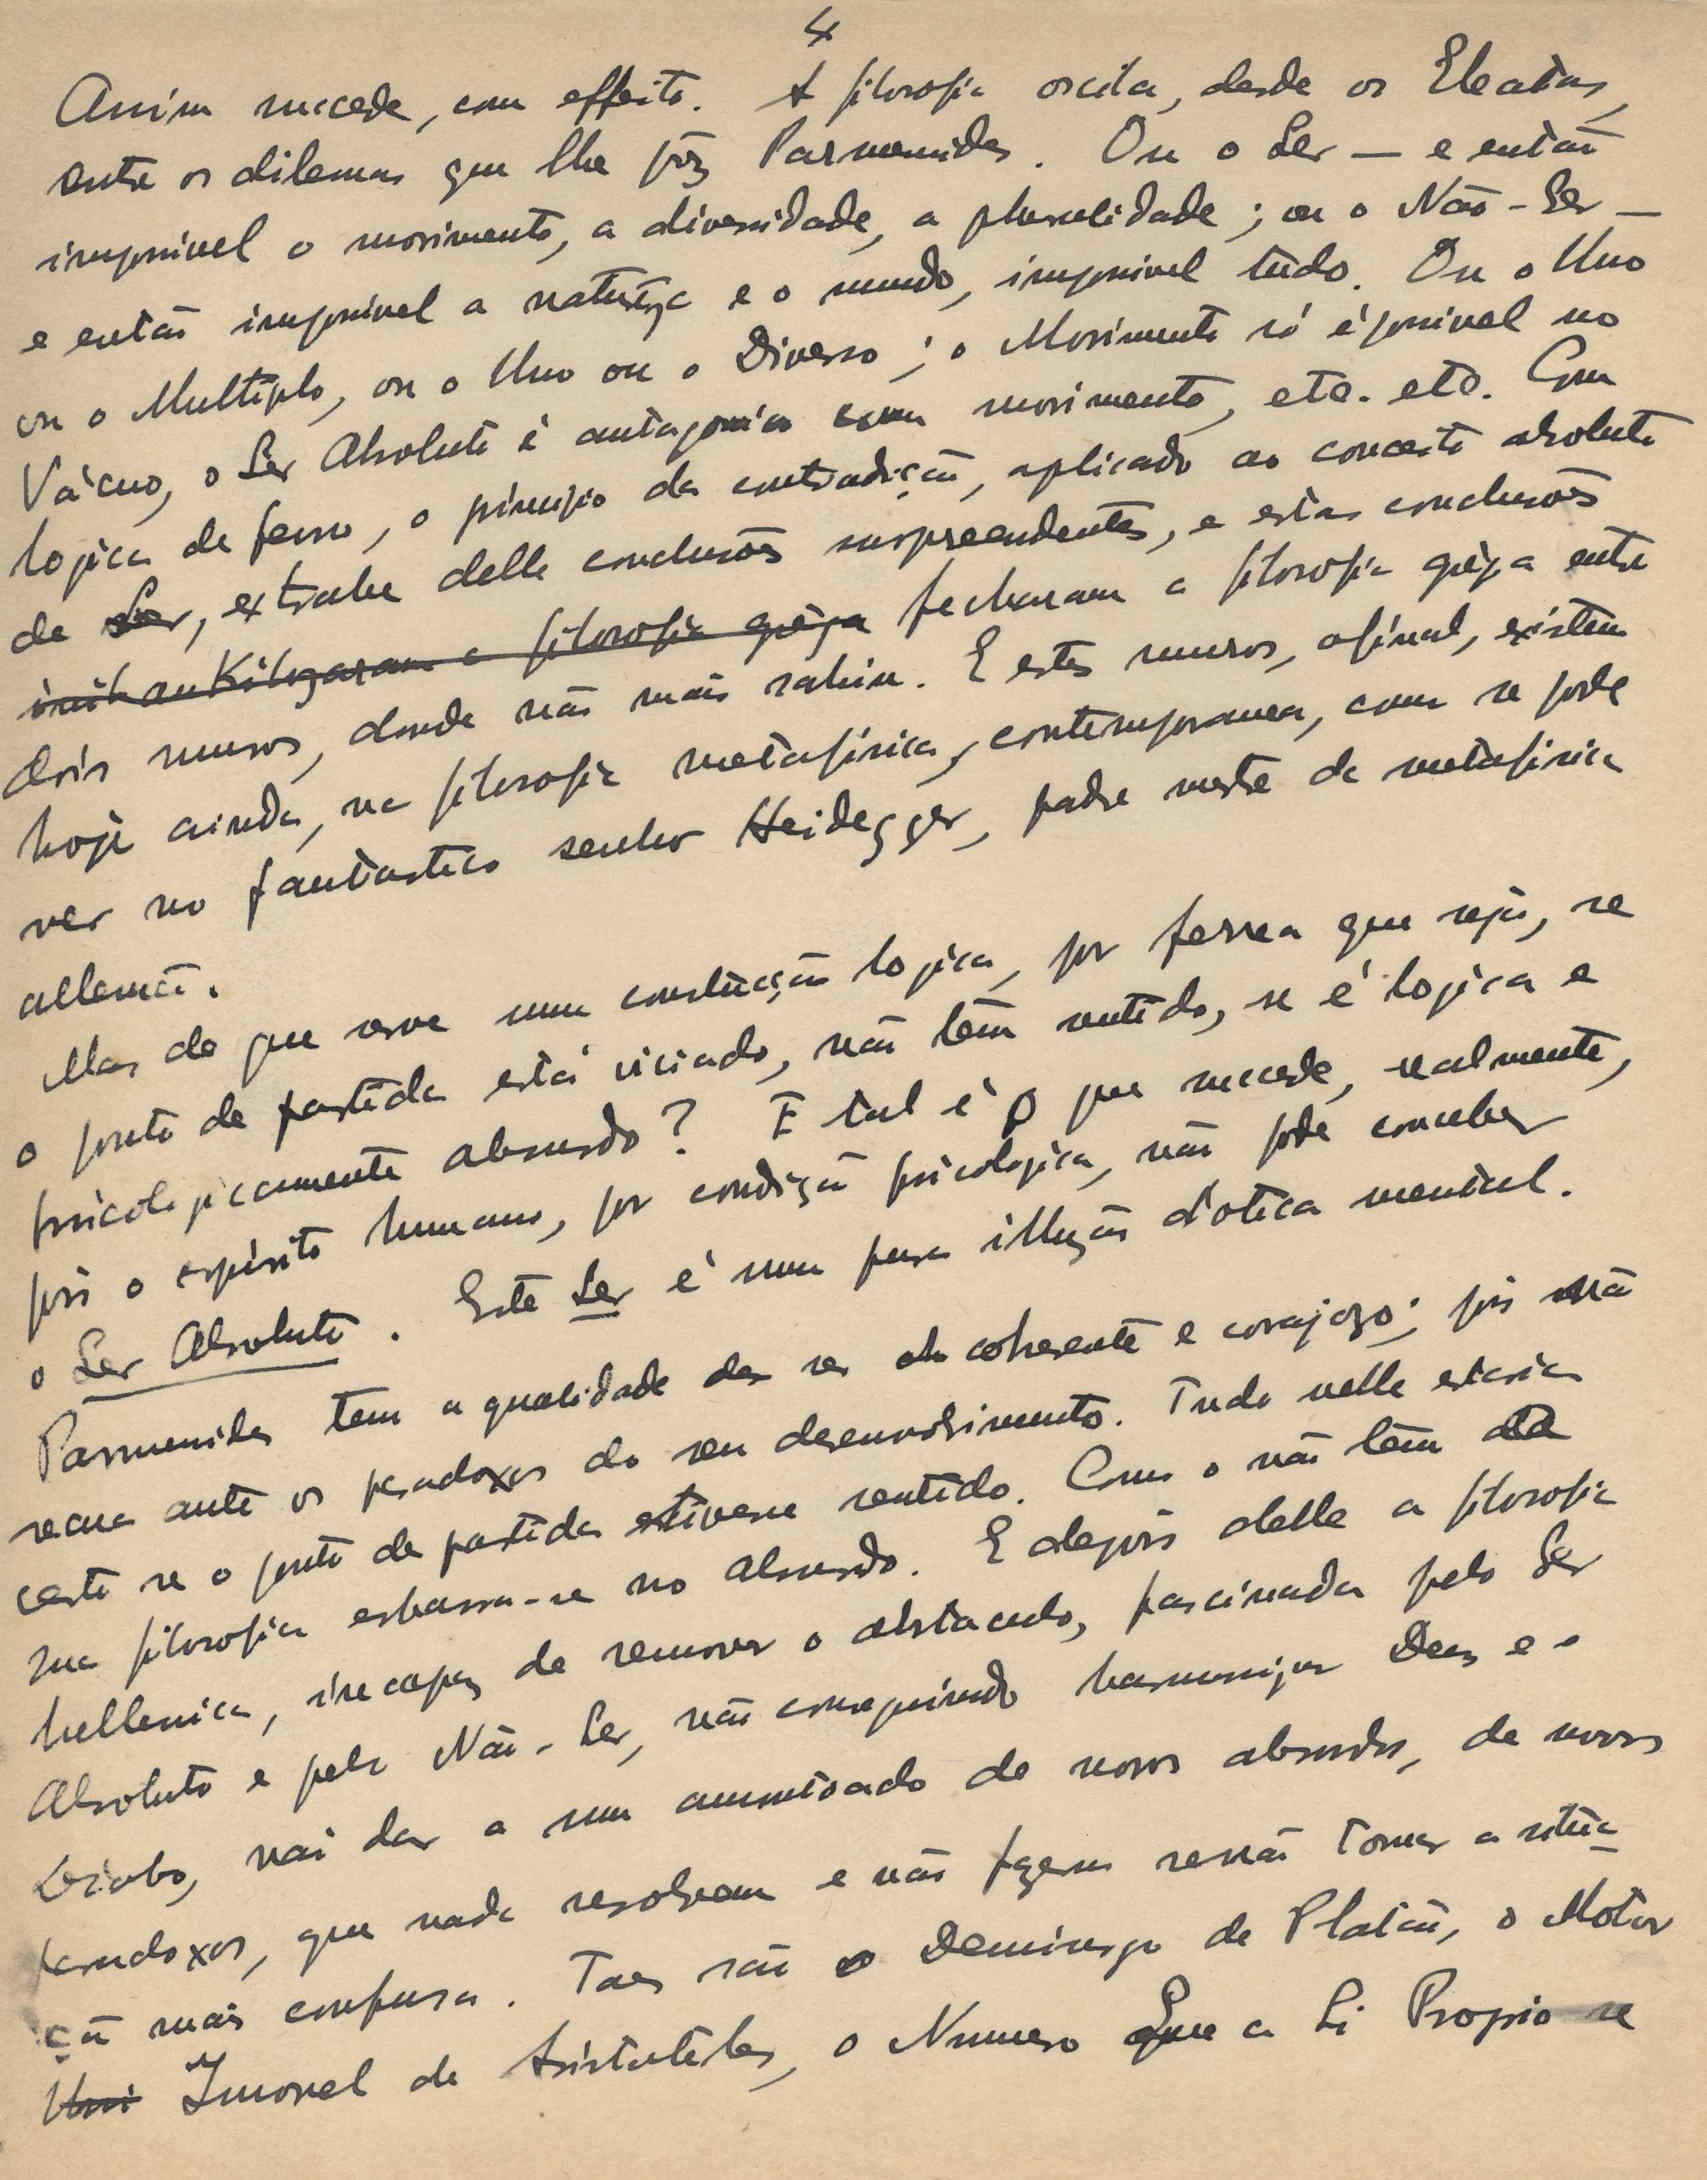 4
Assim succede, com effeito. A filosofia oscila, desde os Eleatas,
entre os dilemas que lhe pôz Parmenides. Ou o Ser — e então
impossivel o movimento, a diversidade, a pluralidade; ou o Não-Ser —
e então impossivel a natureza e o mundo, impossivel tudo. Ou o Uno
ou o Multiplo, ou o Uno ou o Diverso; o Movimento só é possivel no
Vácuo, o Ser Absoluto é antagonico com movimento, etc. etc. Com
logica de ferro, o principio da contradicção, aplicado ao conceito absoluto
de Ser, extrahe delle conclusões surpreendentes, e estas conclusões
a filosofia grêga fecharam a filosofia grêga entre
dois muros, donde não mais sahiu. E estes muros, afinal, existem
hoje ainda, na filosofia metafisica, contemporanea, como se pode
ver no fantastico senhor Heidegger, padre mestre da metafisica
allemã.
Mas de que serve uma construcção logica, por ferrea que seja, se
o ponto de partida está viciado, não têm sentido, se é logica e
psicologicamente absurdo? E tal é o que succede, realmente,
pois o espirito humano, por condição psicologica, não pode conceber
o Ser Absoluto. Este Ser é uma pura illuzão d'otica mental.
Parmenides tem a qualidade de ser coherente e corajozo; pois não
recua ante os paradoxos do seu desenvolvimento. Tudo nelle estaria
certo se o ponto de partida estivesse sentido. Como o não têm
sua filosofia esbarra-se no absurdo. E depois delle a filosofia
hellenica, incapaz de remover o obstaculo, fascinada pelo Ser
Absoluto e pelo Não-Ser, não conseguindo harmonizar Deus e o
Diabo, vai dar a um amontoado de novos absurdos, de novos
paradoxos, que nada resolvem e não fazem senão tornar a situa-
ção mais confusa. Taes são o Demiurgo de Platão, o Motor
Uni Imovel de Aristoteles, o Numero Que a Si Proprio se